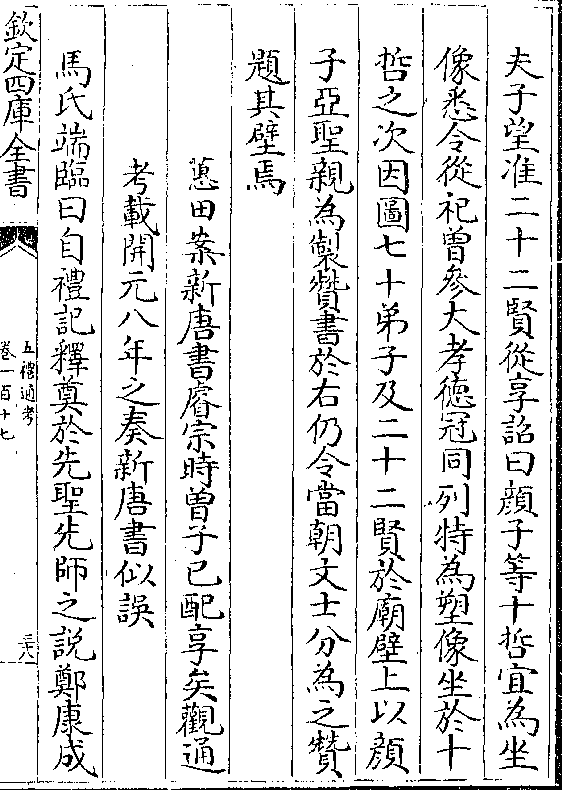 夫子望准二十二賢從享詔曰顔子等十哲宜為坐
像悉令從祀曾參大孝徳冠同列特為塑像坐於十
哲之次因圖七十弟子及二十二賢於廟壁上以顔
子亞聖親為製贊書於右仍令當朝文士分為之贊
題其壁焉
蕙田案新唐書睿宗時曾子已配享矣觀通
考載開元八年之奏新唐書似誤
馬氏端臨曰自禮記釋奠於先聖先師之説鄭康成
欽定四庫全書
五禮通考
卷一百十七
三八